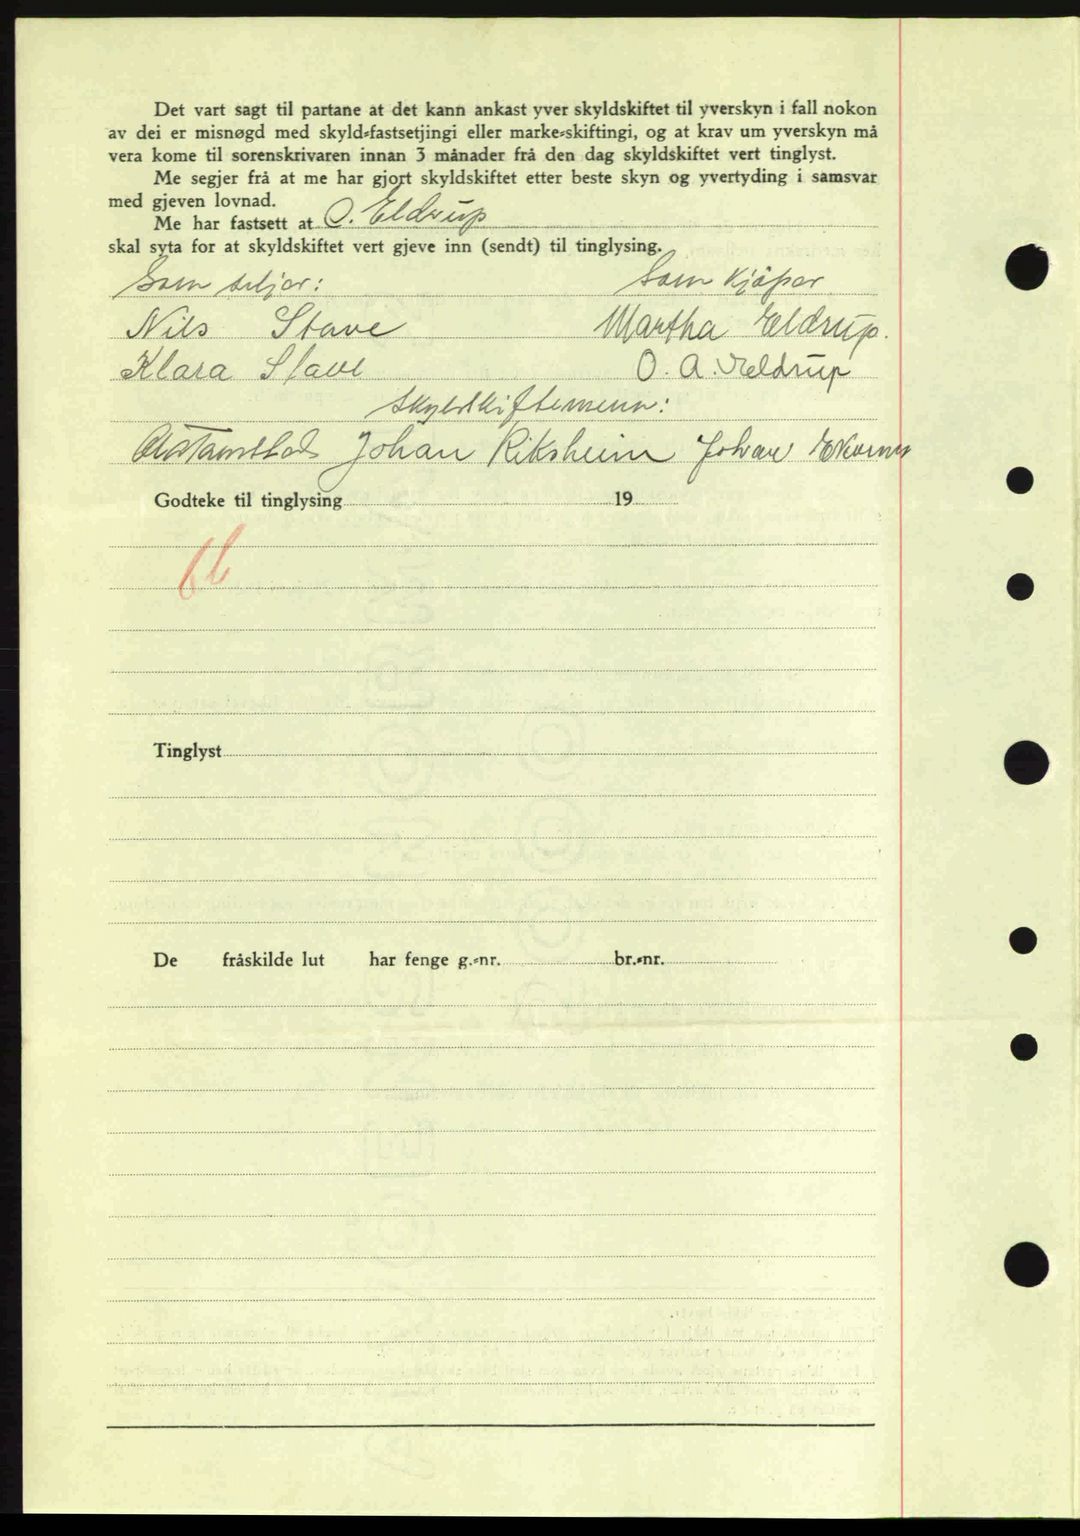 Det vart sagt til partane at det kann ankast yver skyldskiftet til yverskyn i fall nokon
av dei er misnøgd med skyld-fastsetjingi eller marke-skiftingi, og at krav um yverskyn må
vera kome til sorenskrivaren innan 3 månader frå den dag skyldskiftet vert tinglyst.
Me segjer frå at me har gjort skyldskiftet etter beste skyn og yvertyding i samsvar
med gjeven lovnad.
Me har fastsett at O. Eldrup
skal syta for at skyldskiftet vert gjeve inn (sendt) til tinglysing.
Som seljar: Som kjøpar
Nils Stave Martha Eldrup.
Klara Stave O. A. Eldrup
Skyldskiftemenn:
Johan Riksheim Johan Ekornes
Godteke til tinglysing 19
Tinglyst
De fråskilde lut har fenge g.-nr. br.-nr.